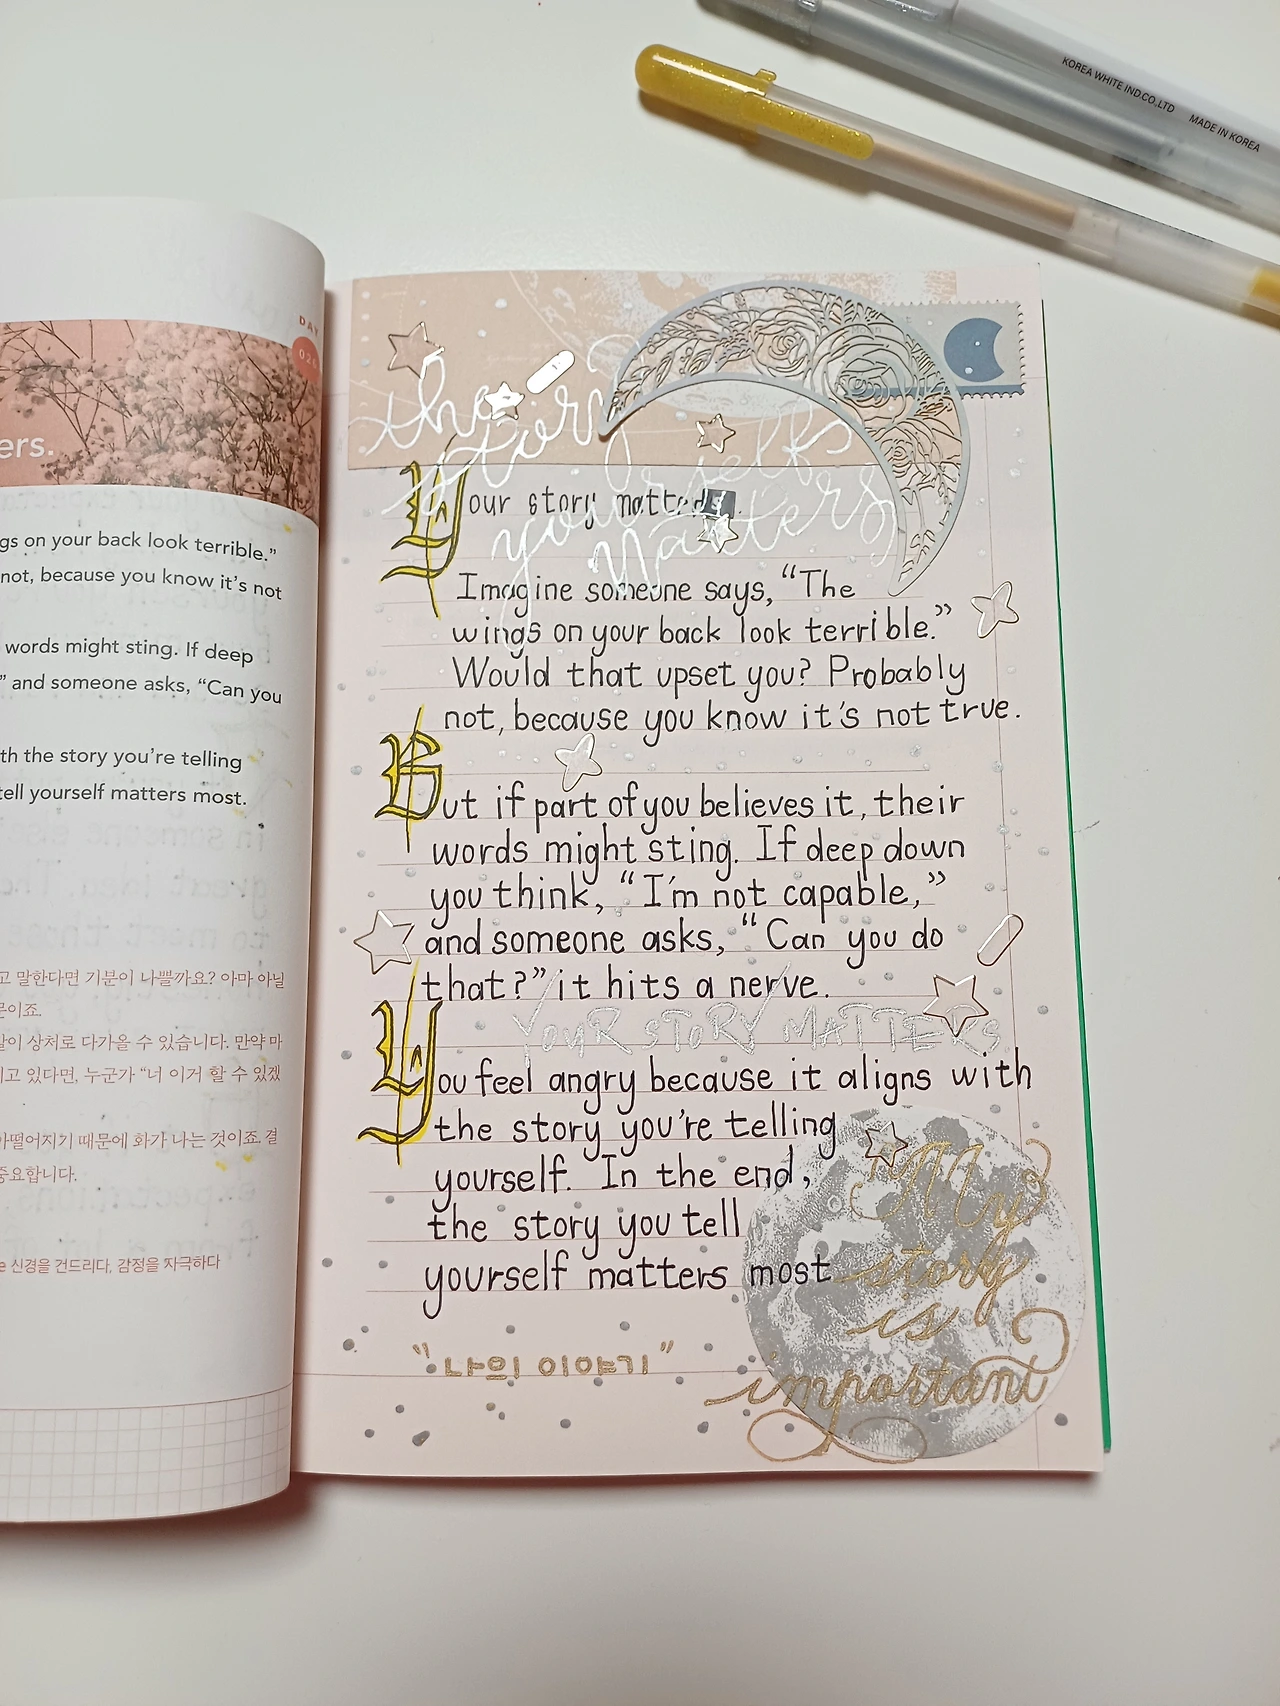 KOREA WHITE IND.CO.,LTD MADE IN KOREA
DAY
ers.
gs on your back look terrible.”
not, because you know it’s not
words might sting. If deep
” and someone asks, “Can you
th the story you’re telling
tell yourself matters most.
고 말한다면 기분이 나쁠까요? 아마 아닐
문이죠.
말이 상처로 다가올 수 있습니다. 만약 마
고 있다면, 누군가 “너 이거 할 수 있겠
맞아떨어지기 때문에 화가 나는 것이죠. 결
중요합니다.
e 신경을 건드리다, 감정을 자극하다
the
story
yourself
Matters
Your story matters.
Imagine someone says, “The
wings on your back look terrible.”
Would that upset you? Probably
not, because you know it's not true.
But if part of you believes it, their
words might sting. If deep down
you think, “I'm not capable,”
and someone asks, “Can you do
that?” it hits a nerve.
YOUR STORY MATTERS.
You feel angry because it aligns with
the story you're telling
yourself. In the end,
the story you tell
yourself matters most
My
story
is
important
“나의 이야기”